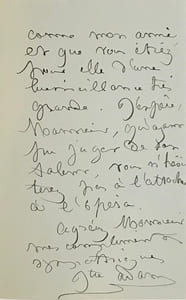 comme mon amie
et que vous étiez
pour elle d'une
bienveillance très
grande. J'espère,
Monsieur, qu'ayant
pu juger de son
talent, vous n'hési
terez pas à l'attacher
à l'Opéra.
Agréez Monsieur
mes compliments
sympathiques